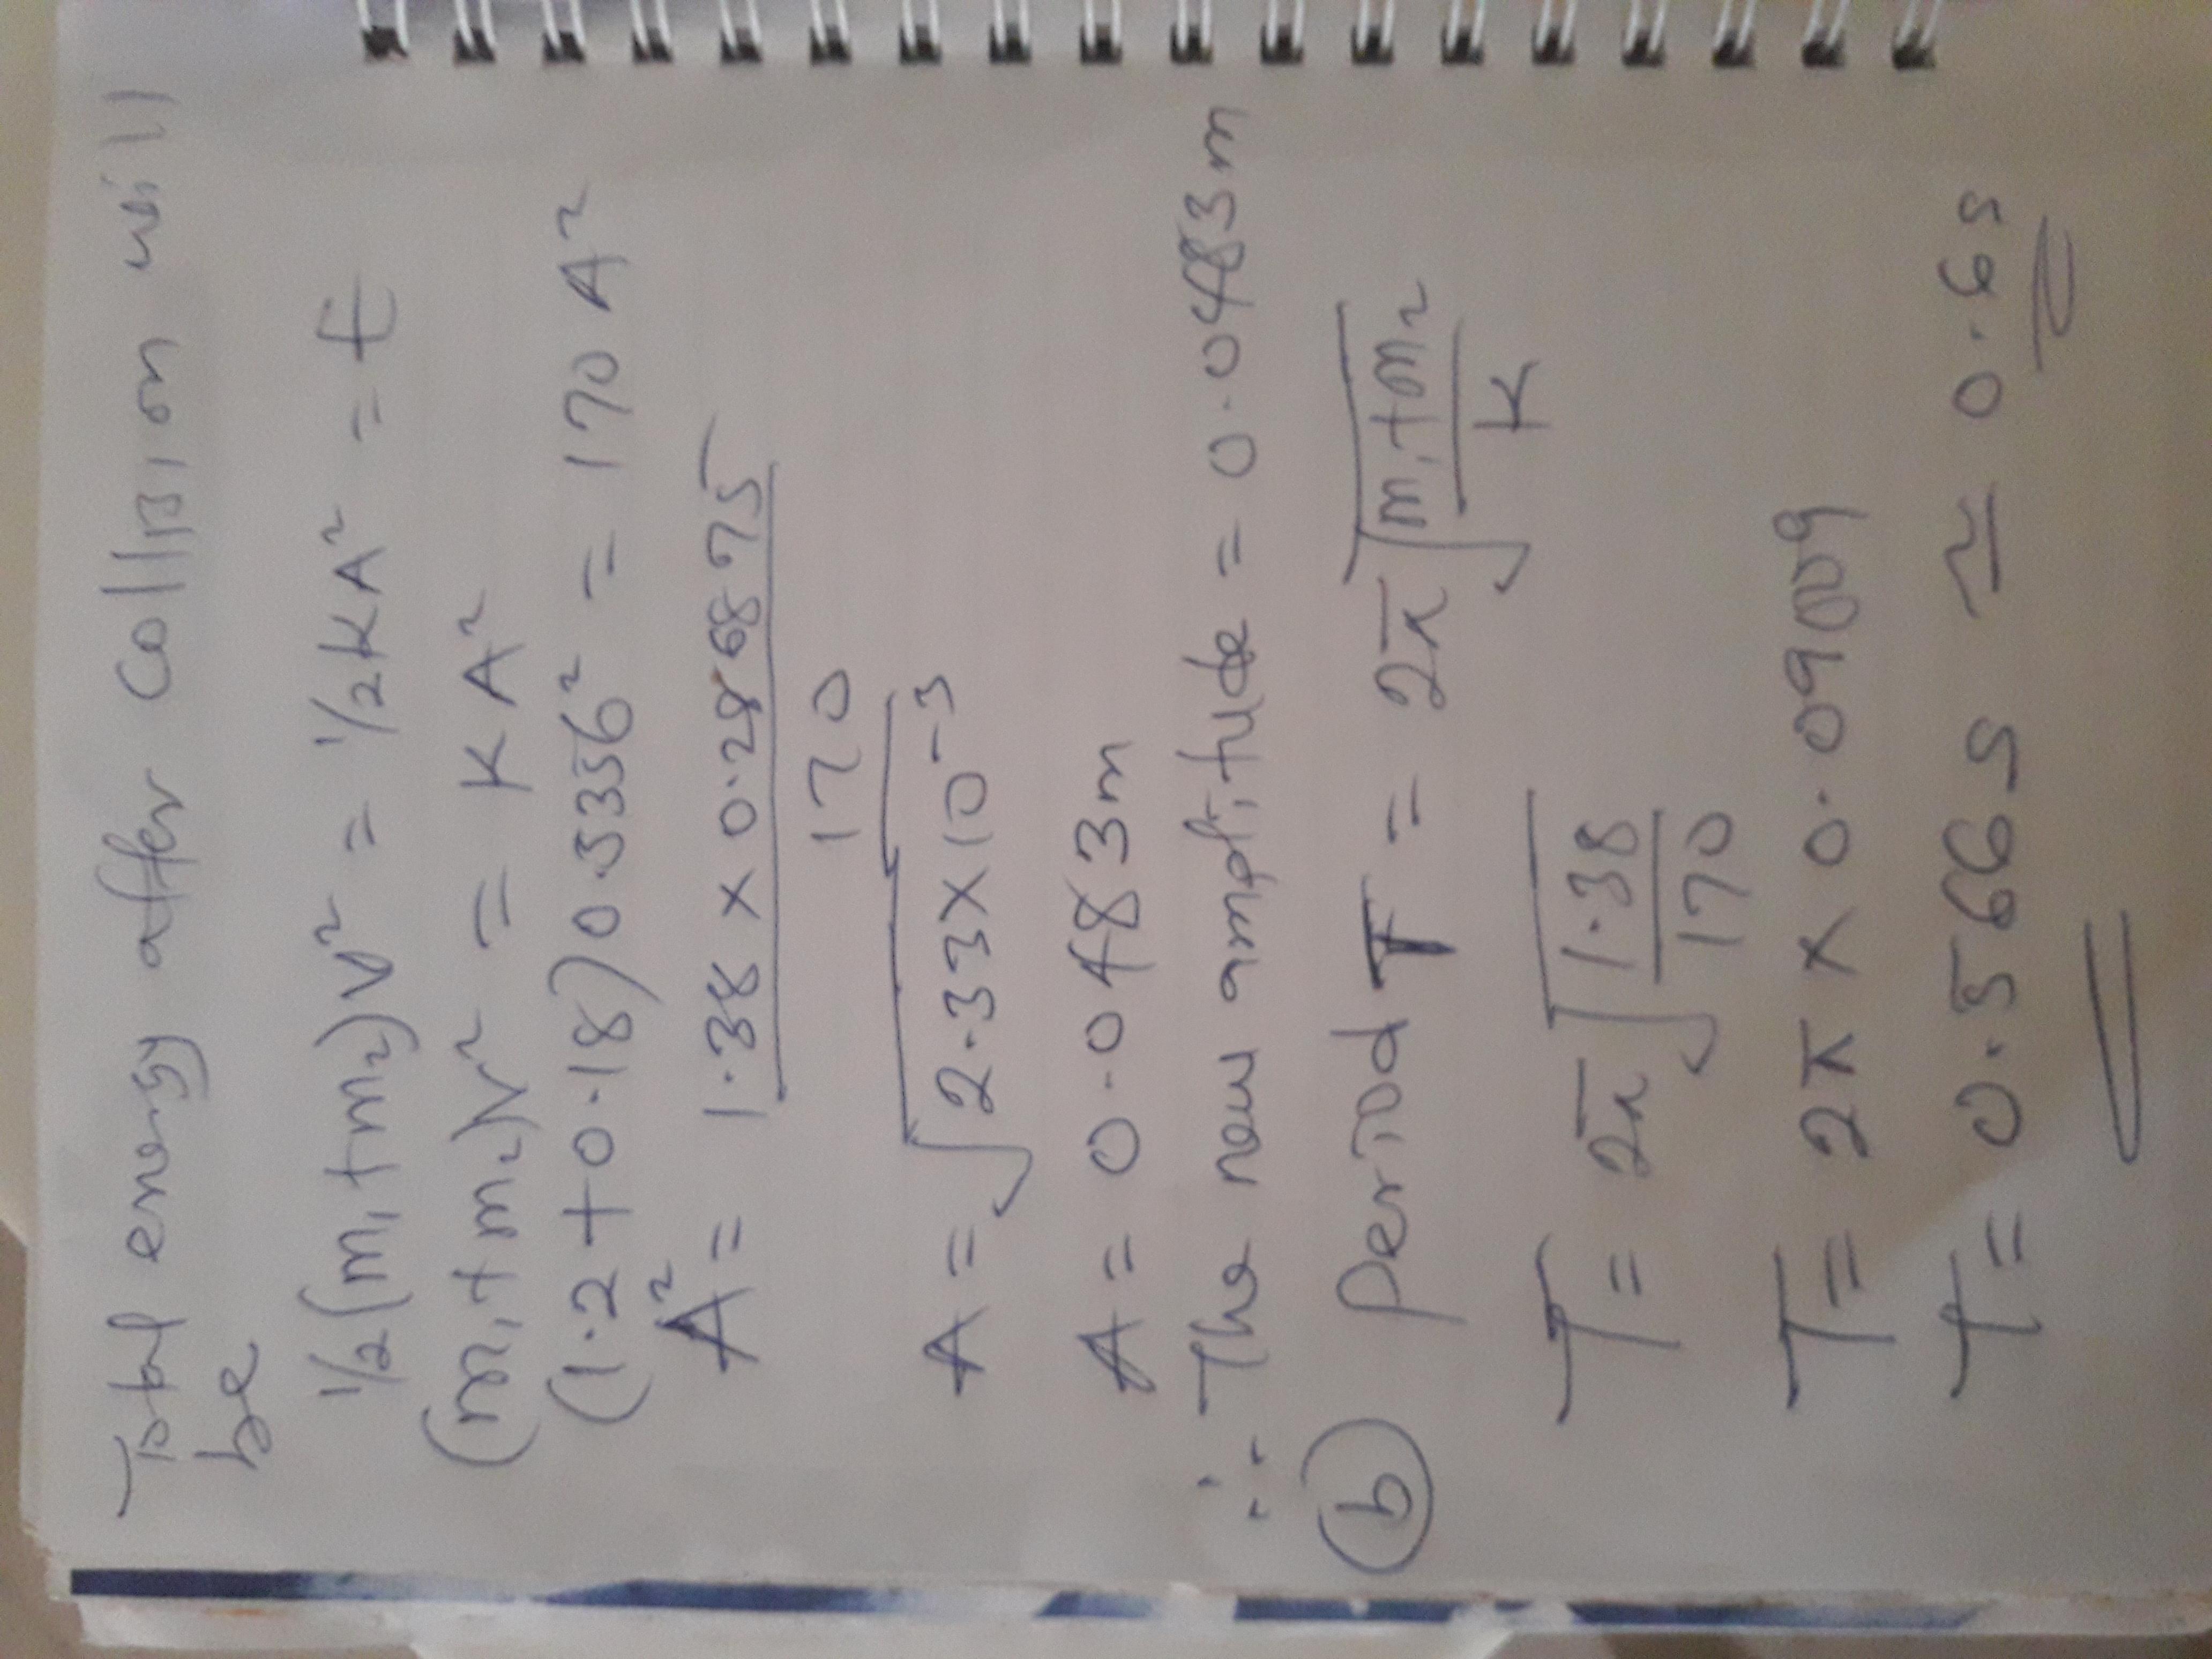 Total energy after collision will
be
1/2(m₁+m₂)v² = 1/2KA² = E
(m₁+m₂)v² = KA²
(1.2+0.18)0.536² = 170A²
A² = 1.38 × 0.286875
170
A = √2.33×10⁻³
A = 0.0483m
∴ The new amplitude = 0.0483m
(b) period T = 2π√(m₁+m₂/K)
T = 2π√(1.38/170)
T = 2π × 0.09009
T = 0.566s ≃ 0.6s